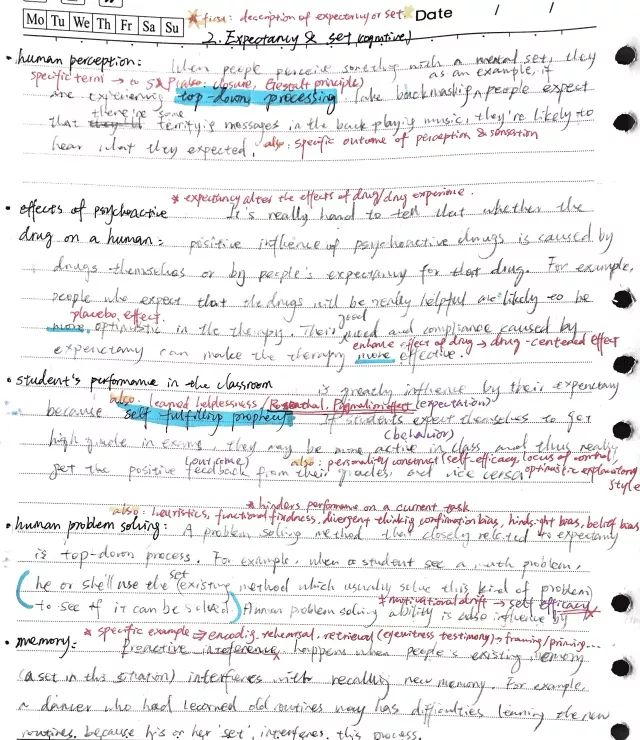 Mo Tu We Th Fr Sa Su
* first: description of expectancy or set.
Date / /
2. Expectancy & set (cognitive)
• human perception: When people perceive something with a mental set, they
specific term → to S&P (also: closure, Gestalt principle) as an example, if
are experiencing top-down processing. Like backmasking, people expect
there're some
that terrifying messages in the back playing music, they're likely to
hear what they expected. also: specific outcome of perception & sensation
* expectancy alter the effects of drug/drug experience.
• effects of psychoactive It's really hard to tell that whether the
drug on a human: positive influence of psychoactive drugs is caused by
drugs themselves or by people's expectancy for that drug. For example,
people who expect that the drugs will be really helpful are likely to be
placebo effect. good
more optimistic in the therapy. Their mood and compliance caused by
enhance effect of drug → drug-centered effect
expenctamy can make the therapy more effective.
• student's performance in the classroom is greatly influence by their expenctary
also: learned helplessness/Rosenthal, Pygmalion effect (expectation)
because self-fulfilling prophecy. If students expect themselves to get
(behavior)
high grade in exams, they may be more active in class and thus really
(outcome) also: personality construct (self-efficacy, locus of control,
get the positive feedback from their grades, and vice versa. optimistic explanatory
style
* hinders performance on a current task
also: heuristics, functional fixedness, divergent thinking confirmation bias, hindsight bias, belief bias
• human problem solving: A problem solving method that closely related to expectamy
is top-down process. For example, when a student see a math problem,
set
(he or she'll use the existing method which usually solve this kind of problem
* motivational drift → self efficacy
to see if it can be solved) Human problem solving ability is also influence by
* specific example ⇒ encoding, rehearsal, retrieval (eyewitness testimony) → framing/priming...
• memory: Proactive inteference happens when people's existing memory
(a set in this sitnation) interferes with recalling new memory. For example,
a dancer who had learned old routines may has difficulties learning the new
routines, because his or her 'set' interferes this process.